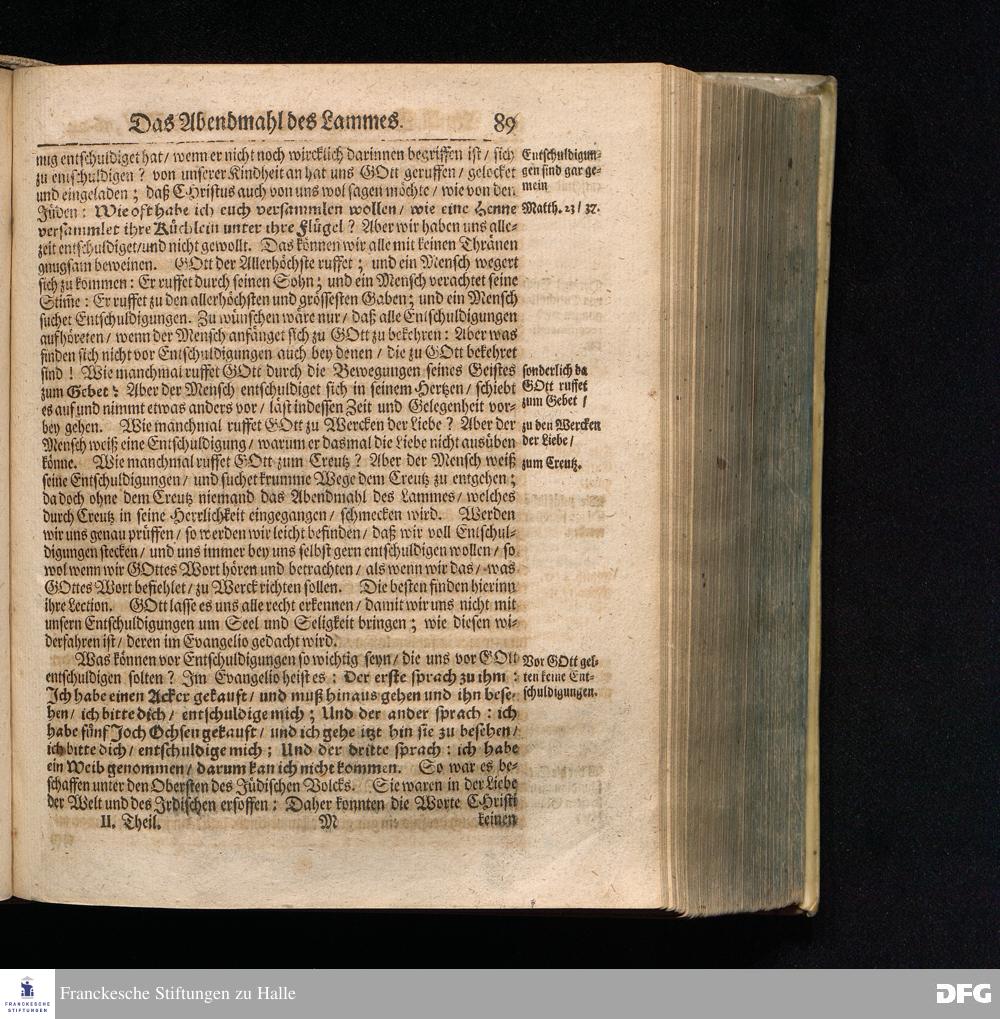 Das Abendmahl des Lammes. 89
nug entschuldiget hat / wenn er nicht noch wircklich darinnen begriffen ist / sich
zu entschuldigen ? von unserer Kindheit an hat uns GOtt geruffen / gelocket
und eingeladen ; daß CHristus auch von uns wol sagen möchte / wie von den
Jüden : Wie oft habe ich euch versammlen wollen / wie eine Henne
versammlet ihre Küchlein unter ihre Flügel ? Aber wir haben uns alle-
zeit entschuldiget/und nicht gewollt. Das können wir alle mit keinen Thränen
gnugsam beweinen. GOtt der Allerhöchste ruffet ; und ein Mensch wegert
sich zu kommen : Er ruffet durch seinen Sohn ; und ein Mensch verachtet seine
Stim̃e : Er ruffet zu den allerhöchsten und grössesten Gaben ; und ein Mensch
suchet Entschuldigungen. Zu wünschen wäre nur / daß alle Entschuldigungen
aufhöreten / wenn der Mensch anfänget sich zu GOtt zu bekehren : Aber was
finden sich nicht vor Entschuldigungen auch bey denen / die zu GOtt bekehret
sind ! Wie manchmal ruffet GOtt durch die Bewegungen seines Geistes
zum Gebet ? Aber der Mensch entschuldiget sich in seinem Hertzen / schiebt
es auf und nimmt etwas anders vor / läst indessen Zeit und Gelegenheit vor-
bey gehen. Wie manchmal ruffet GOtt zu Wercken der Liebe ? Aber der
Mensch weiß eine Entschuldigung / warum er dasmal die Liebe nicht ausüben
könne. Wie manchmal ruffet GOtt zum Creutz ? Aber der Mensch weiß
seine Entschuldigungen / und suchet krumme Wege dem Creutz zu entgehen ;
da doch ohne dem Creutz niemand das Abendmahl des Lammes / welches
durch Creutz in seine Herrlichkeit eingegangen / schmecken wird. Werden
wir uns genau prüffen / so werden wir leicht befinden / daß wir voll Entschul-
digungen stecken / und uns immer bey uns selbst gern entschuldigen wollen / so
wol wenn wir GOttes Wort hören und betrachten / als wenn wir das / was
GOttes Wort befiehlet / zu Werck richten sollen. Die besten finden hierinn
ihre Lection. GOtt lasse es uns alle recht erkennen / damit wir uns nicht mit
unsern Entschuldigungen um Seel und Seligkeit bringen ; wie diesen wi-
derfahren ist / deren im Evangelio gedacht wird.
Was können vor Entschuldigungen so wichtig seyn / die uns vor GOtt
entschuldigen solten ? Im Evangelio heist es : Der erste sprach zu ihm :
Ich habe einen Acker gekauft / und muß hinaus gehen und ihn bese-
hen / ich bitte dich / entschuldige mich ; Und der ander sprach : ich
habe fünf Joch Ochsen gekauft / und ich gehe itzt hin sie zu besehen /
ich bitte dich / entschuldige mich ; Und der dritte sprach : ich habe
ein Weib genommen / darum kan ich nicht kommen. So war es be-
schaffen unter den Obersten des Jüdischen Volcks. Sie waren in der Liebe
der Welt und des Irdischen ersoffen : Daher konnten die Worte CHristi
II. Theil. M keinen
Entschuldigun-
gen sind gar ge-
mein
Matth. 23 / 37.
sonderlich da
GOtt ruffet
zum Gebet /
zu den Wercken
der Liebe /
zum Creutz.
Vor GOtt gel-
ten keine Ent-
schuldigungen.
FRANCKESCHE
STIFTUNGEN
Franckesche Stiftungen zu Halle
DFG